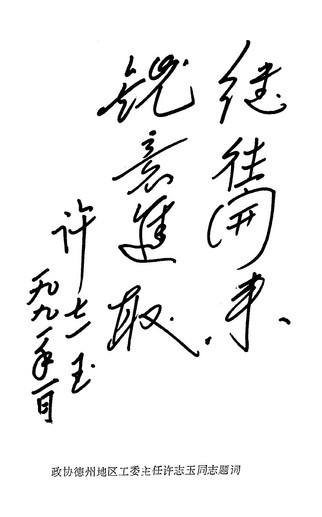 继往開来
锐意進取
许志玉
一九九一年一月
政协德州地区工委主任许志玉同志题词